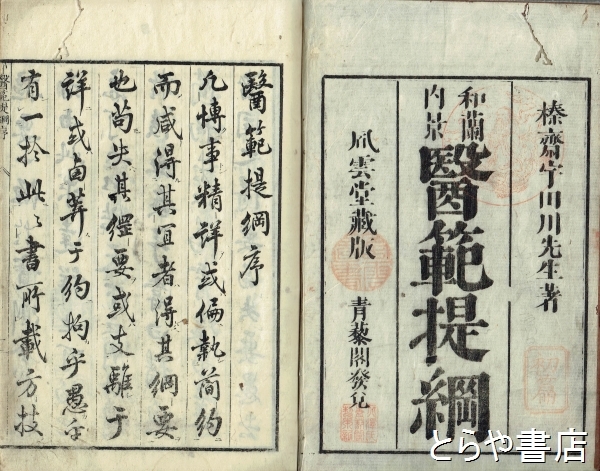 榛齋宇田川先生著
和蘭
内景
醫範提綱
風雲堂藏版
青藜閣發兌
醫範提綱序
凡博事精詳或偏執簡約
而咸得其宜者得其綱要
也苟失其綱要或支離于
詳或鹵莽于約拘乎愚全
有一於此以書所載方技
醫範提綱序
とらや書店